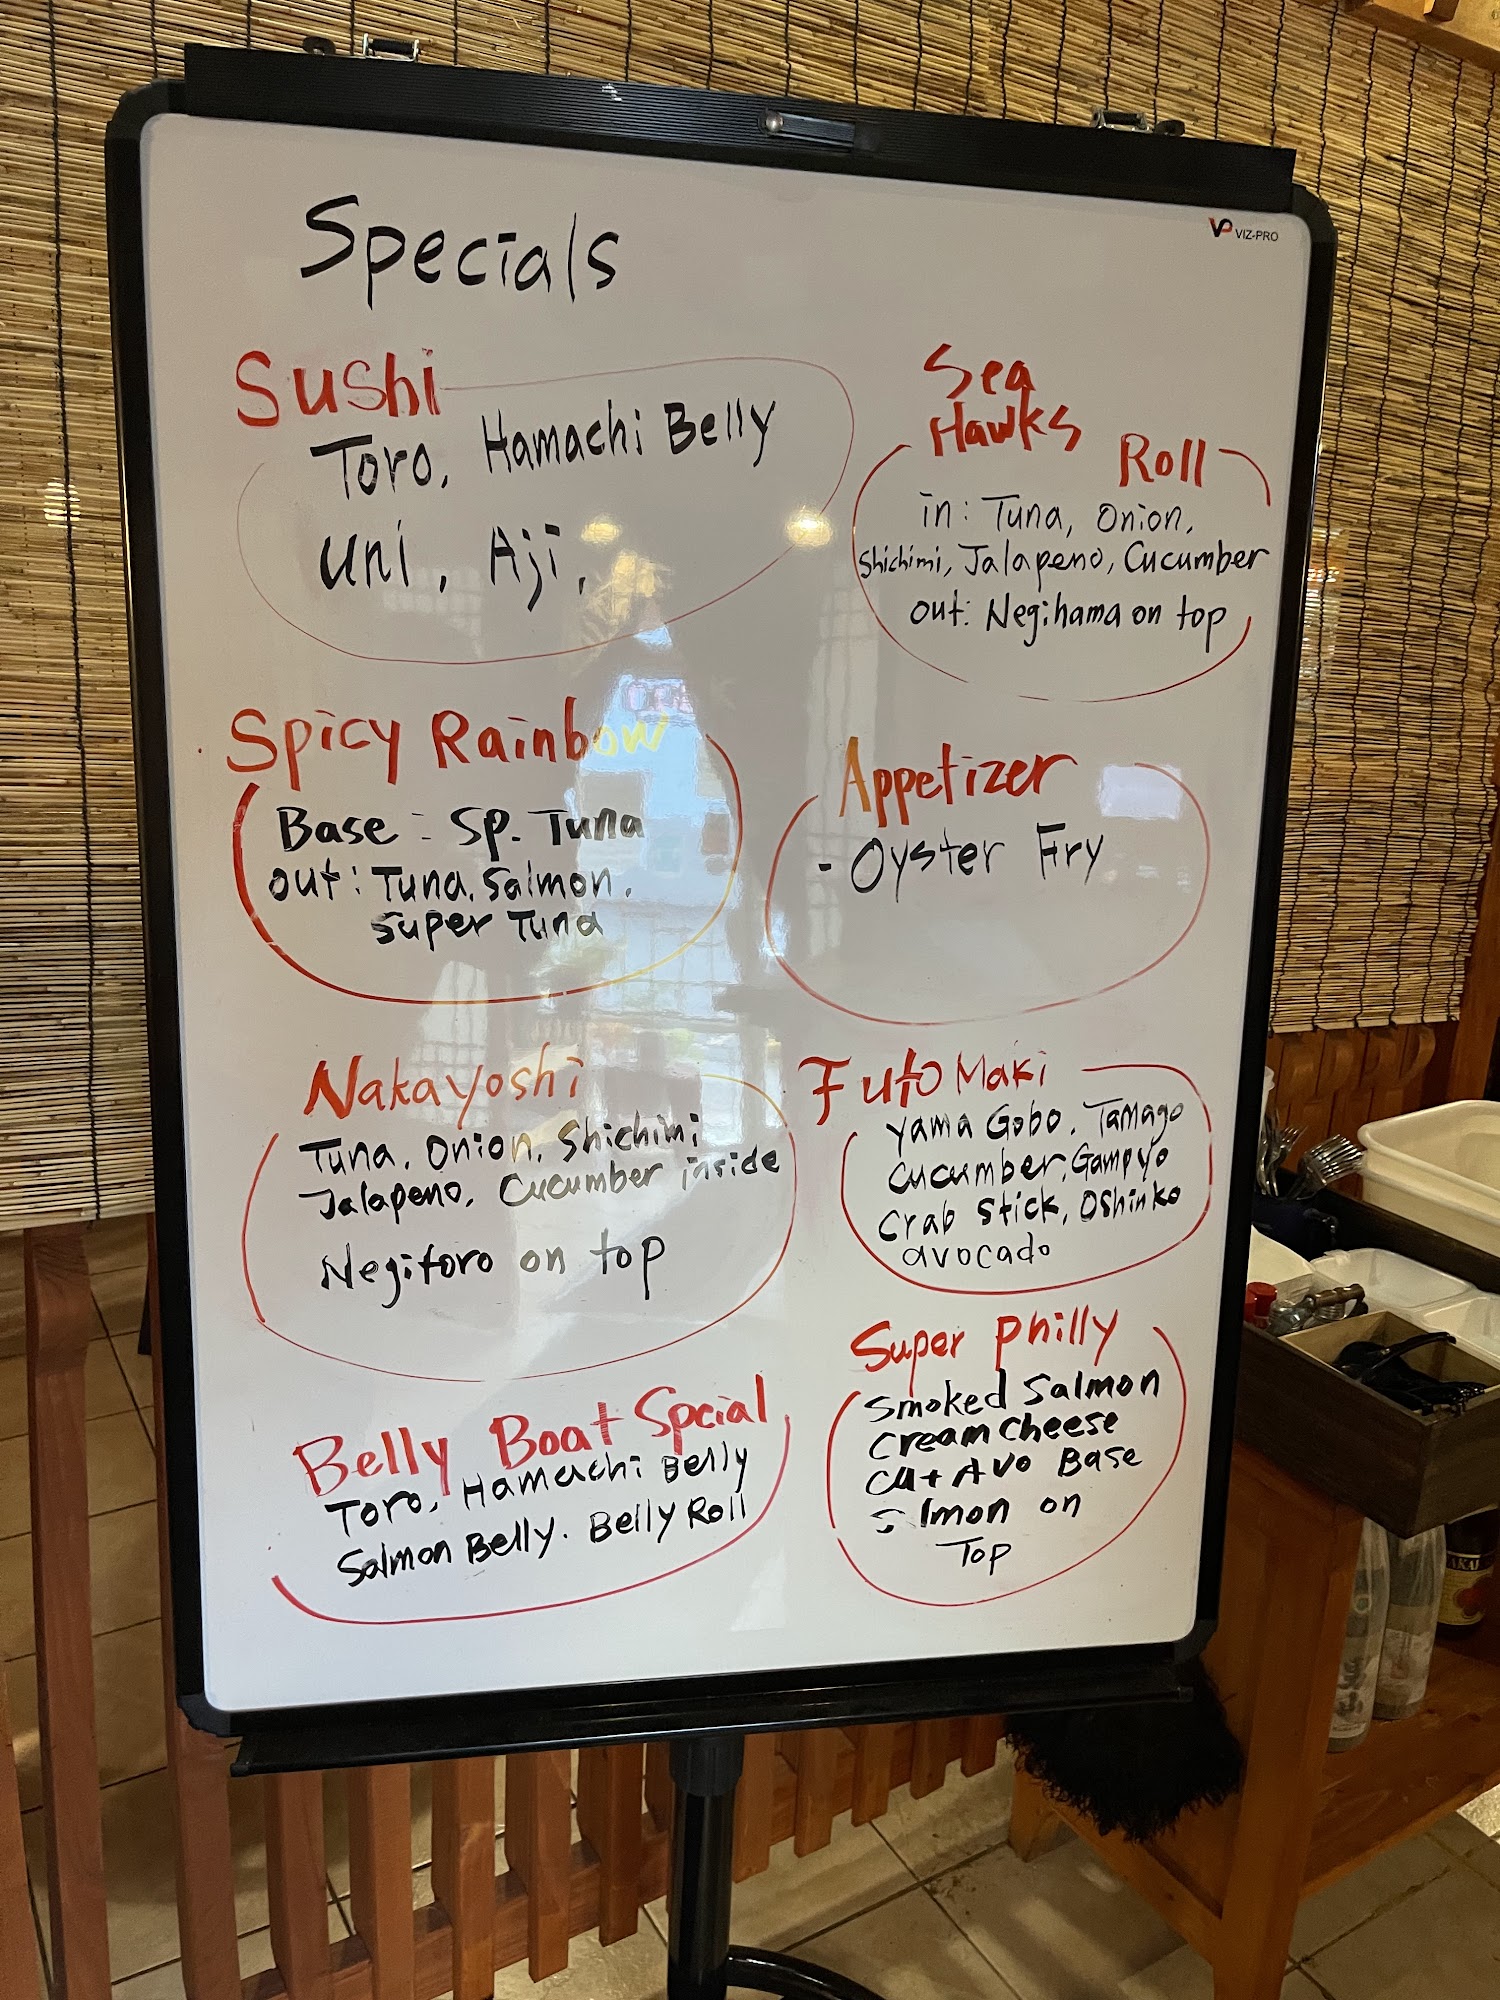 Specials
VIZ-PRO
Sushi
Toro, Hamachi Belly
uni, Aji,
Sea
Hawks Roll
in: Tuna, Onion,
Shichimi, Jalapeno, Cucumber
out: Negihama on top
Spicy Rainbow
Base: Sp. Tuna
out: Tuna, Salmon,
Super Tuna
Appetizer
- Oyster Fry
Nakayoshi
Tuna, Onion, Shichimi
Jalapeno, Cucumber inside
Negitoro on top
Futo Maki
Yama Gobo, Tamago
Cucumber, Gampyo
Crab Stick, Oshinko
avocado
Belly Boat Spcial
Toro, Hamachi Belly
Salmon Belly. Belly Roll
Super Philly
Smoked Salmon
Cream Cheese
Cu + Avo Base
Salmon on
Top